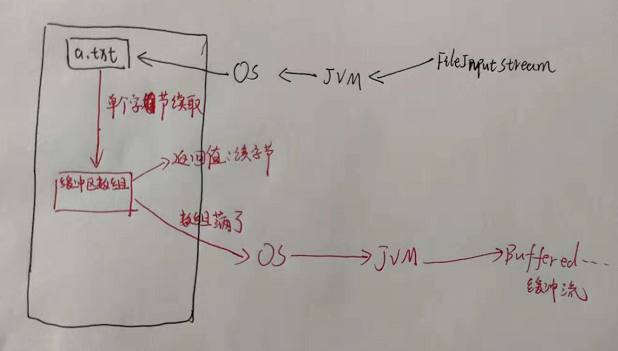 a.txt
OS
JVM
FileInputStream
单个字节读取
缓冲区数组
返回值:读字节
数组满了
OS
JVM
Buffered....
缓冲流